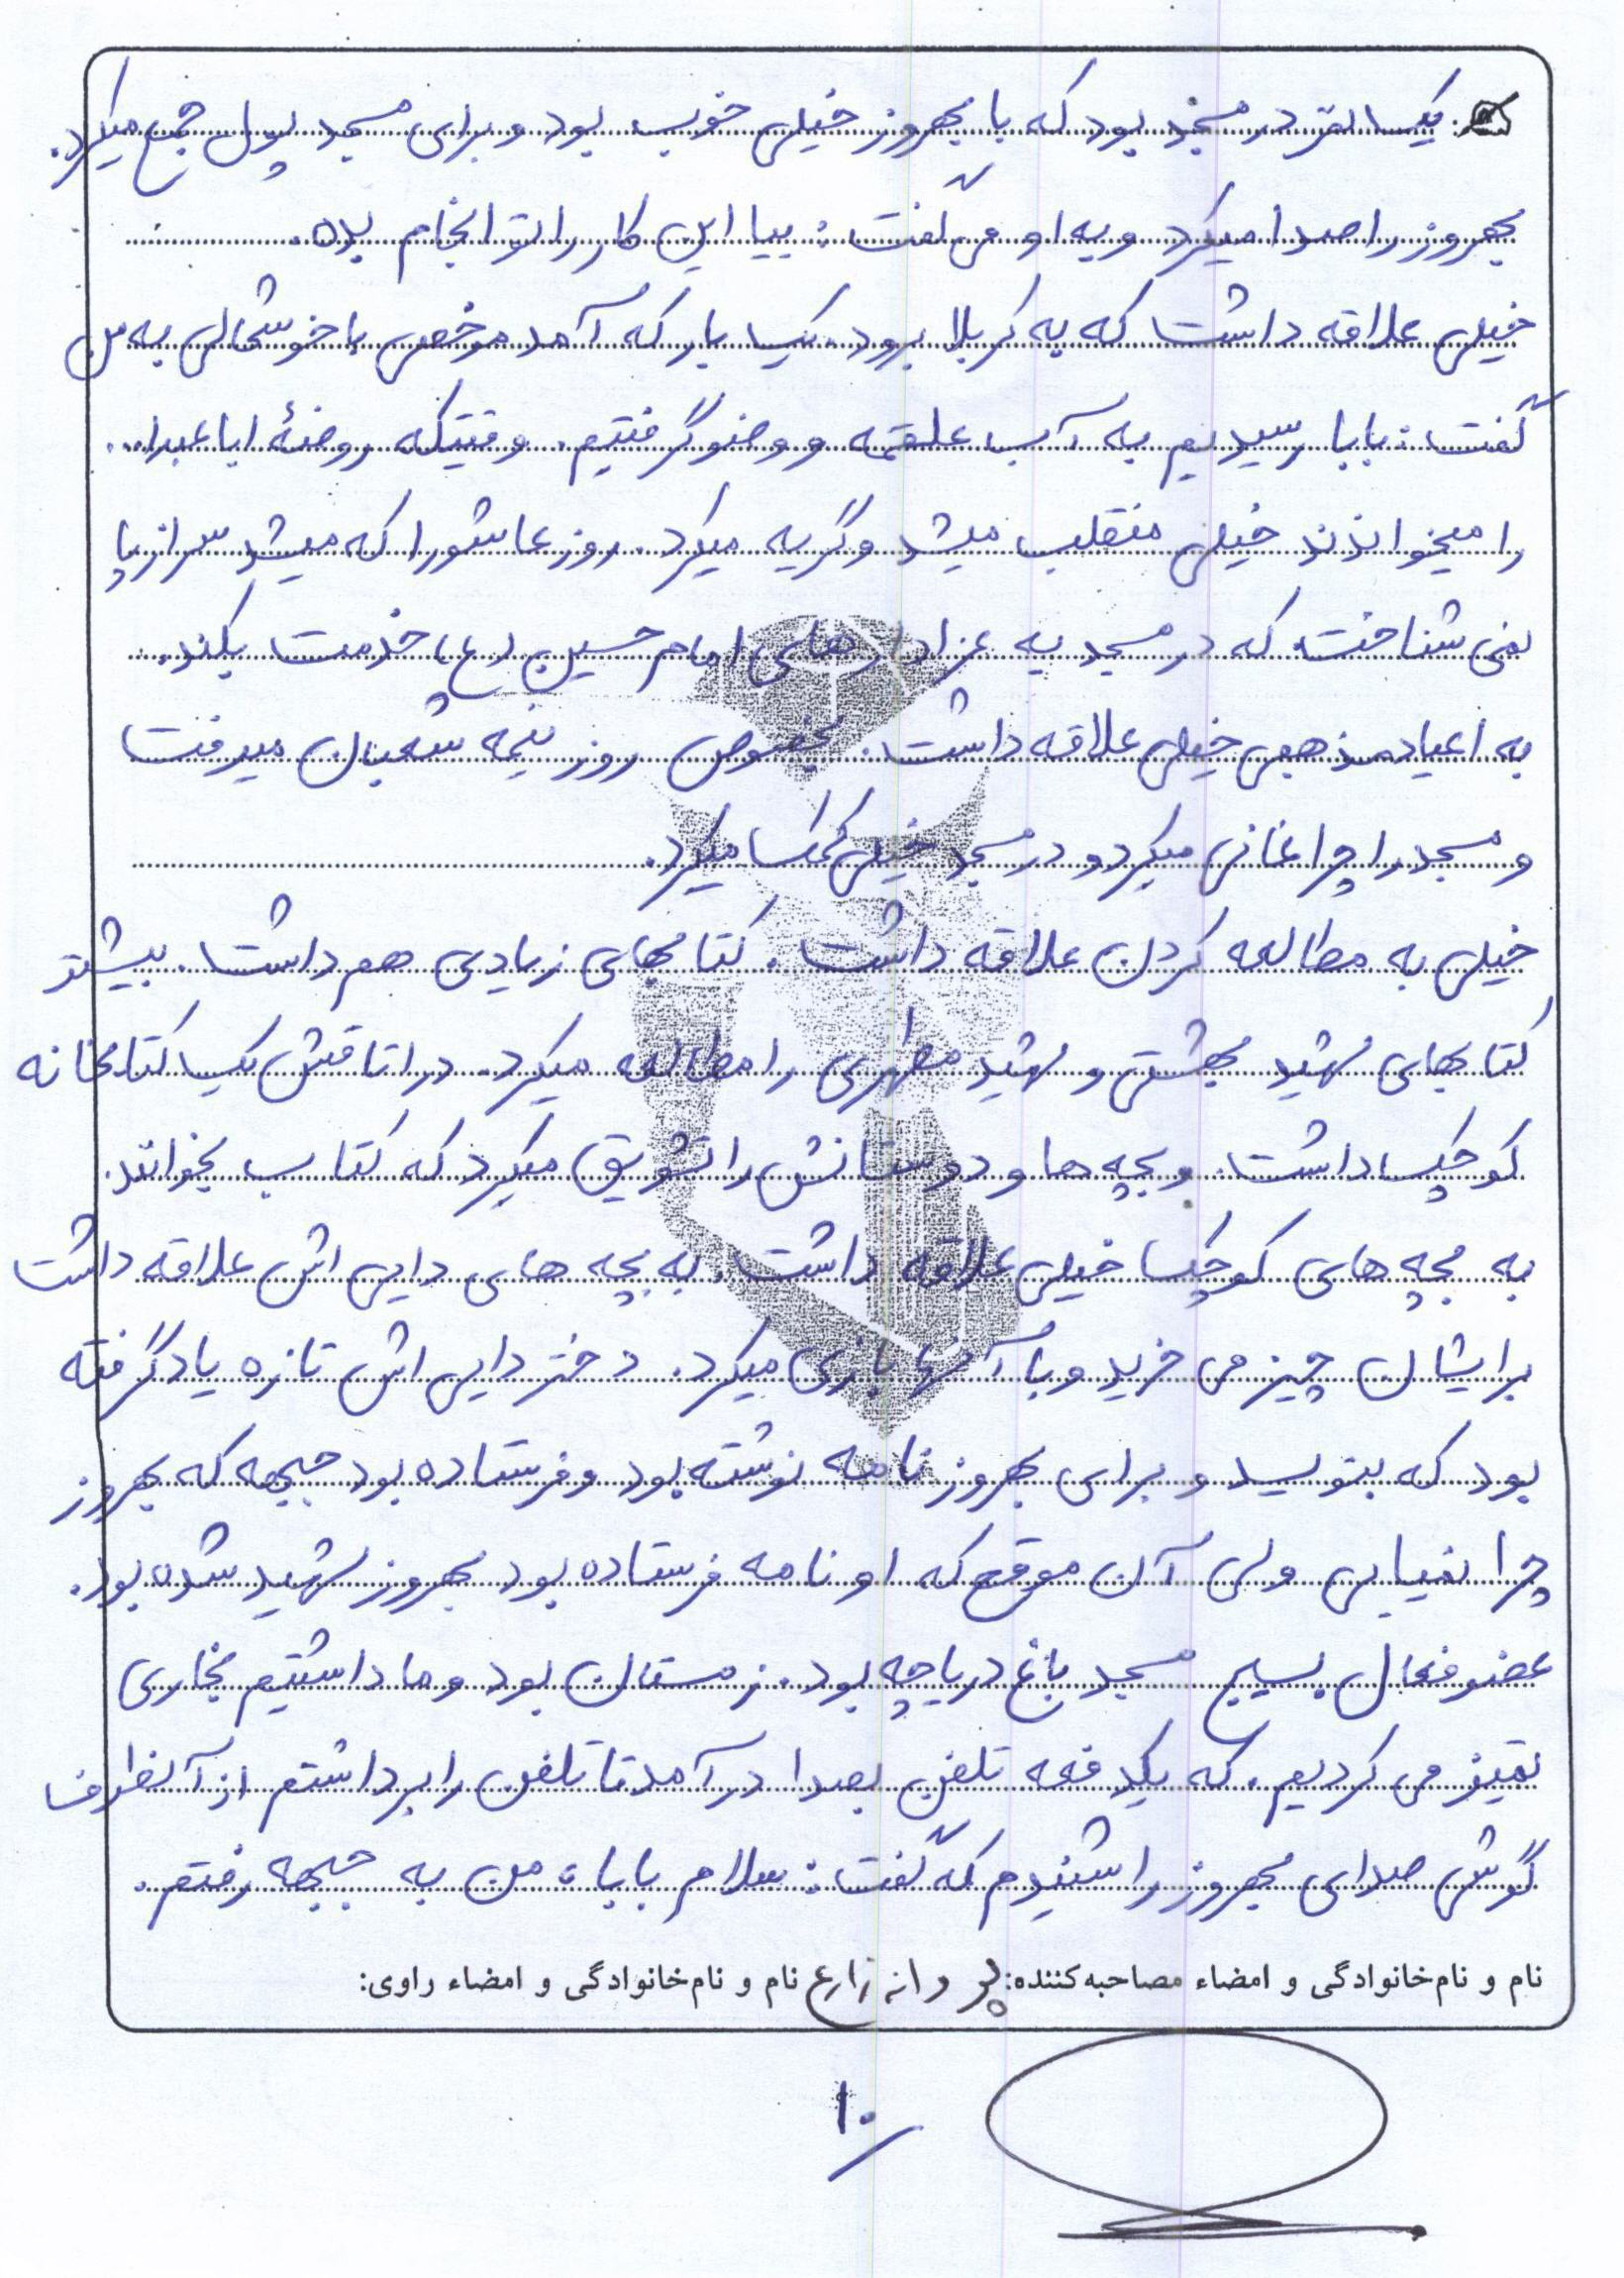 یک نفر در مسجد بود که با بهروز خیلی خوب بود و برای مسجد پول جمع میکرد.
بهروز را صدا میکرد و به او می گفت: بیا این کار را تو انجام بده.
خیلی علاقه داشت که به کربلا برود. یک بار که آمد مرخصی با خوشحالی به من
گفت: بابا رسیدیم به آب علقمه و وضو گرفتیم. وقتیکه روضهٔ اباعبدا...
را میخواندند خیلی منقلب میشد و گریه میکرد. روز عاشورا که میشد سر از پا
نمی شناخت که در مسجد به عزادارهای امام حسین (ع) خدمت بکند.
به اعیاد مذهبی خیلی علاقه داشت. بخصوص روز نیمه شعبان میرفت
و مسجد را چراغانی میکرد و در مسجد خیلی کمک میکرد.
خیلی به مطالعه کردن علاقه داشت. کتابهای زیادی هم داشت. بیشتر
کتابهای شهید بهشتی و شهید مطهری را مطالعه میکرد. در اتاقش یک کتابخانه
کوچک داشت. و بچه ها و دوستانش را تشویق میکرد که کتاب بخوانند.
به بچه های کوچک خیلی علاقه داشت. به بچه های دایی اش علاقه داشت
برایشان چیز می خرید و با آنها بازی میکرد. دختر دایی اش تازه یاد گرفته
بود که بنویسد و برای بهروز نامه نوشته بود و فرستاده بود جبهه که بهروز
چرا نمیایی ولی آن موقع که او نامه فرستاده بود بهروز شهید شده بود.
عضو فعال بسیج مسجد باغ دریاچه بود. زمستان بود و ما داشتیم بخاری
تمیز می کردیم. که یکدفعه تلفن بصدا درآمد تا تلفن را برداشتم از آنطرف
گوشی صدای بهروز را شنیدم که گفت: سلام بابا، من به جبهه رفتم.
نام و نام‌خانوادگی و امضاء مصاحبه‌کننده: پروانه زارع نام و نام‌خانوادگی و امضاء راوی:
۱۰